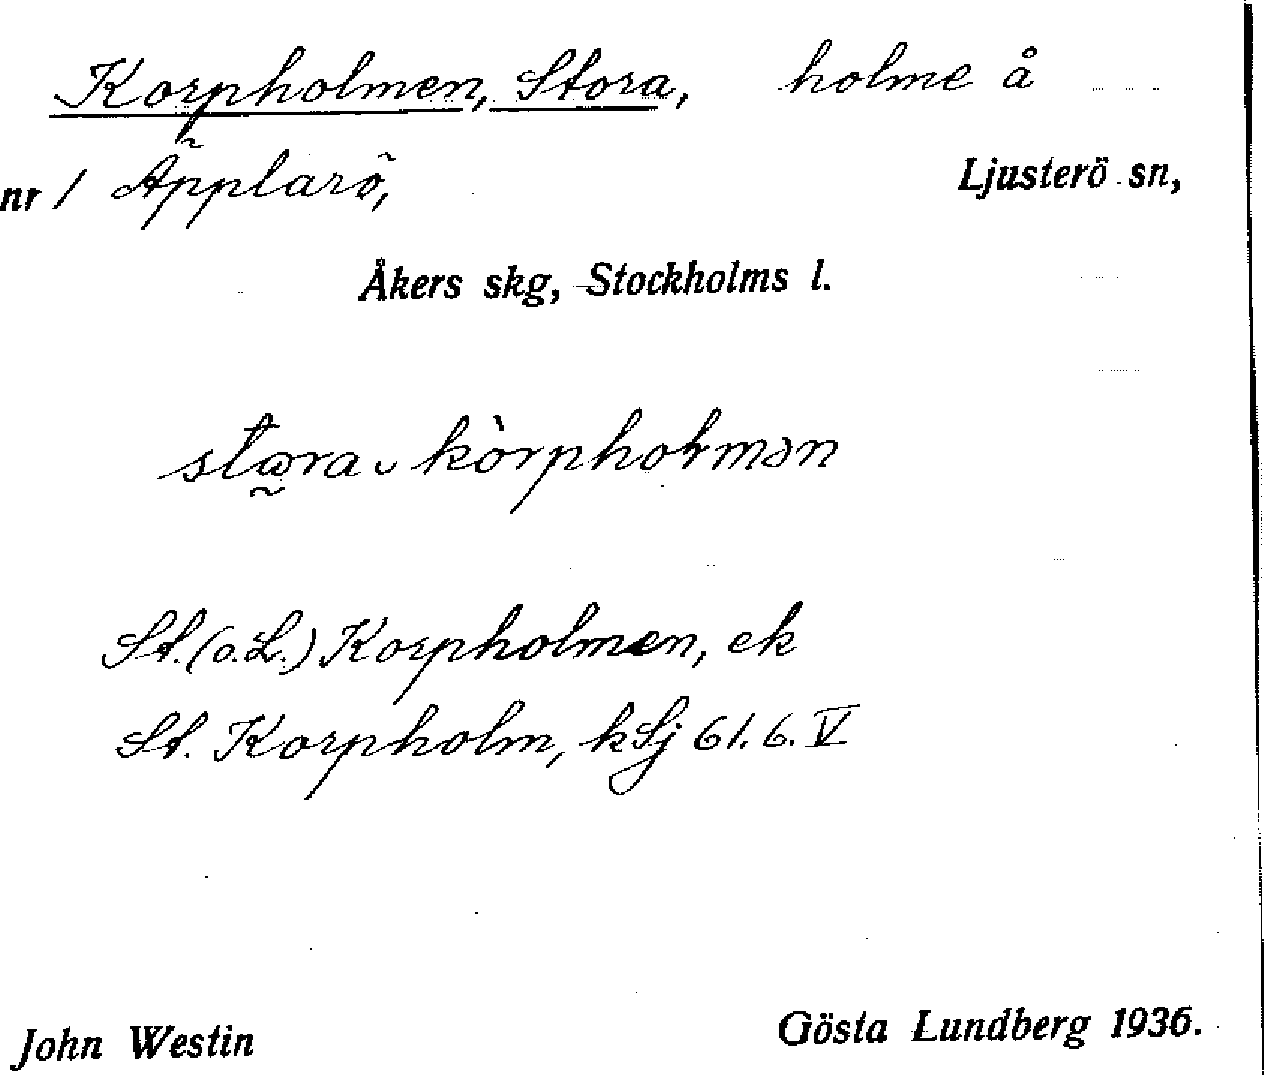 Korpholmen, Stora, holme å
nr 1 Äpplarö, Ljusterö sn,
Åkers skg, Stockholms l.
kòrpholmən
St. (o. L.) Korpholmen, ek
St. Korpholm, kSj 61. 6. V
John Westin Gösta Lundberg 1936.